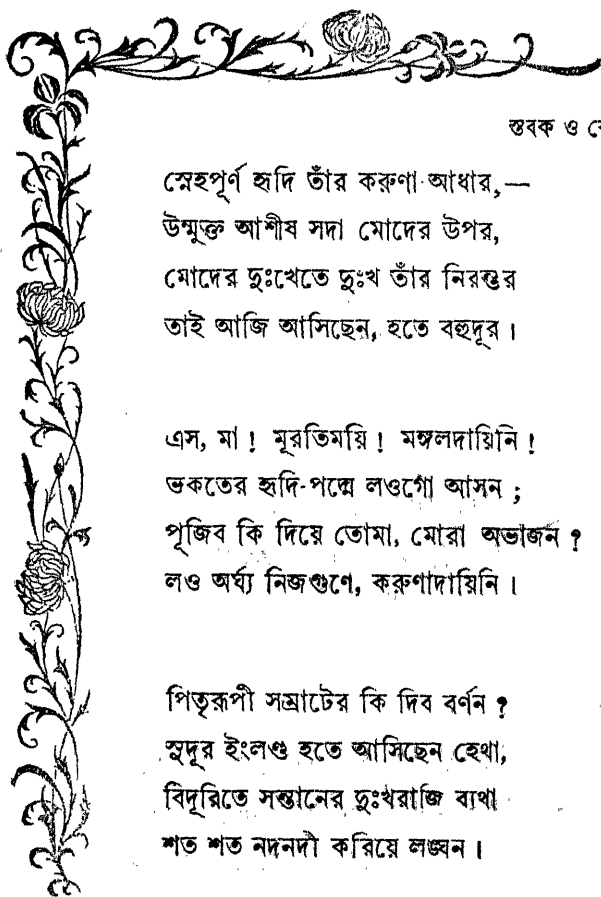 স্তবক ও
স্নেহপূর্ণ হৃদি তাঁর করুণা আধার,—
উন্মুক্ত আশীষ সদা মোদের উপর,
মোদের দুঃখেতে দুঃখ তাঁর নিরন্তর
তাই আজি আসিছেন, হতে বহুদূর।
এস, মা! মূরতিময়ি! মঙ্গলদায়িনি!
ভকতের হৃদি-পদ্মে লওগো আসন;
পূজিব কি দিয়ে তোমা, মোরা অভাজন?
লও অর্ঘ্য নিজগুণে, করুণাদায়িনি।
পিতৃরূপী সম্রাটের কি দিব বর্ণন?
সুদূর ইংলণ্ড হতে আসিছেন হেথা,
বিদূরিতে সন্তানের দুঃখরাজি ব্যথা
শত শত নদনদী করিয়ে লঙ্ঘন।